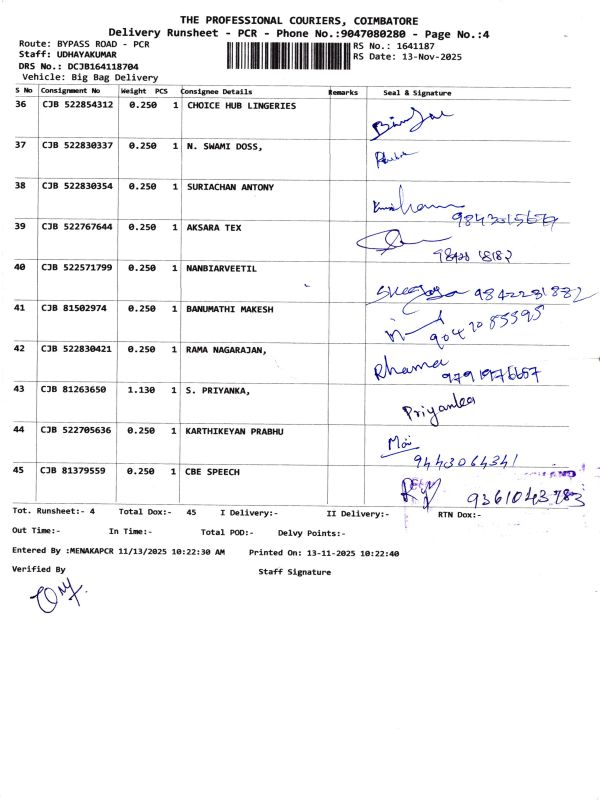 THE PROFESSIONAL COURIERS, COIMBATORE
Delivery Runsheet - PCR - Phone No.:9047080280 - Page No.:4
Route: BYPASS ROAD - PCR
RS No.: 1641187
Staff: UDHAYAKUMAR
RS Date: 13-Nov-2025
DRS No.: DCJB164118704
Vehicle: Big Bag Delivery
S No Consignment No Weight PCS Consignee Details Remarks Seal & Signature
36 CJB 522854312 0.250 1 CHOICE HUB LINGERIES
37 CJB 522830337 0.250 1 N. SWAMI DOSS,
38 CJB 522830354 0.250 1 SURIACHAN ANTONY
39 CJB 522767644 0.250 1 AKSARA TEX
40 CJB 522571799 0.250 1 NANBIARVEETIL 9842231882
41 CJB 81502974 0.250 1 BANUMATHI MAKESH
42 CJB 522830421 0.250 1 RAMA NAGARAJAN, Rhama
43 CJB 81263650 1.130 1 S. PRIYANKA, Priyanka
44 CJB 522705636 0.250 1 KARTHIKEYAN PRABHU
9443064341
45 CJB 81379559 0.250 1 CBE SPEECH
9361043783
Tot. Runsheet:- 4 Total Dox:- 45 I Delivery:- II Delivery:- RTN Dox:-
Out Time:- In Time:- Total POD:- Delvy Points:-
Entered By :MENAKAPCR 11/13/2025 10:22:30 AM Printed On: 13-11-2025 10:22:40
Verified By Staff Signature